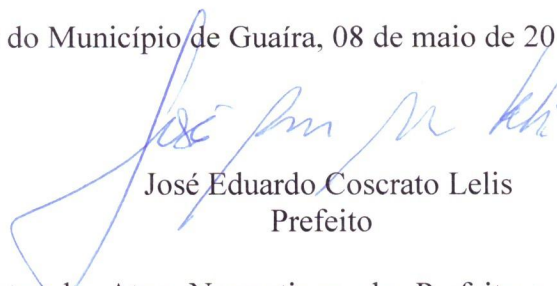 do Município de Guaíra, 08 de maio de 20
José Lelis
José Eduardo Coscrato Lelis
Prefeito